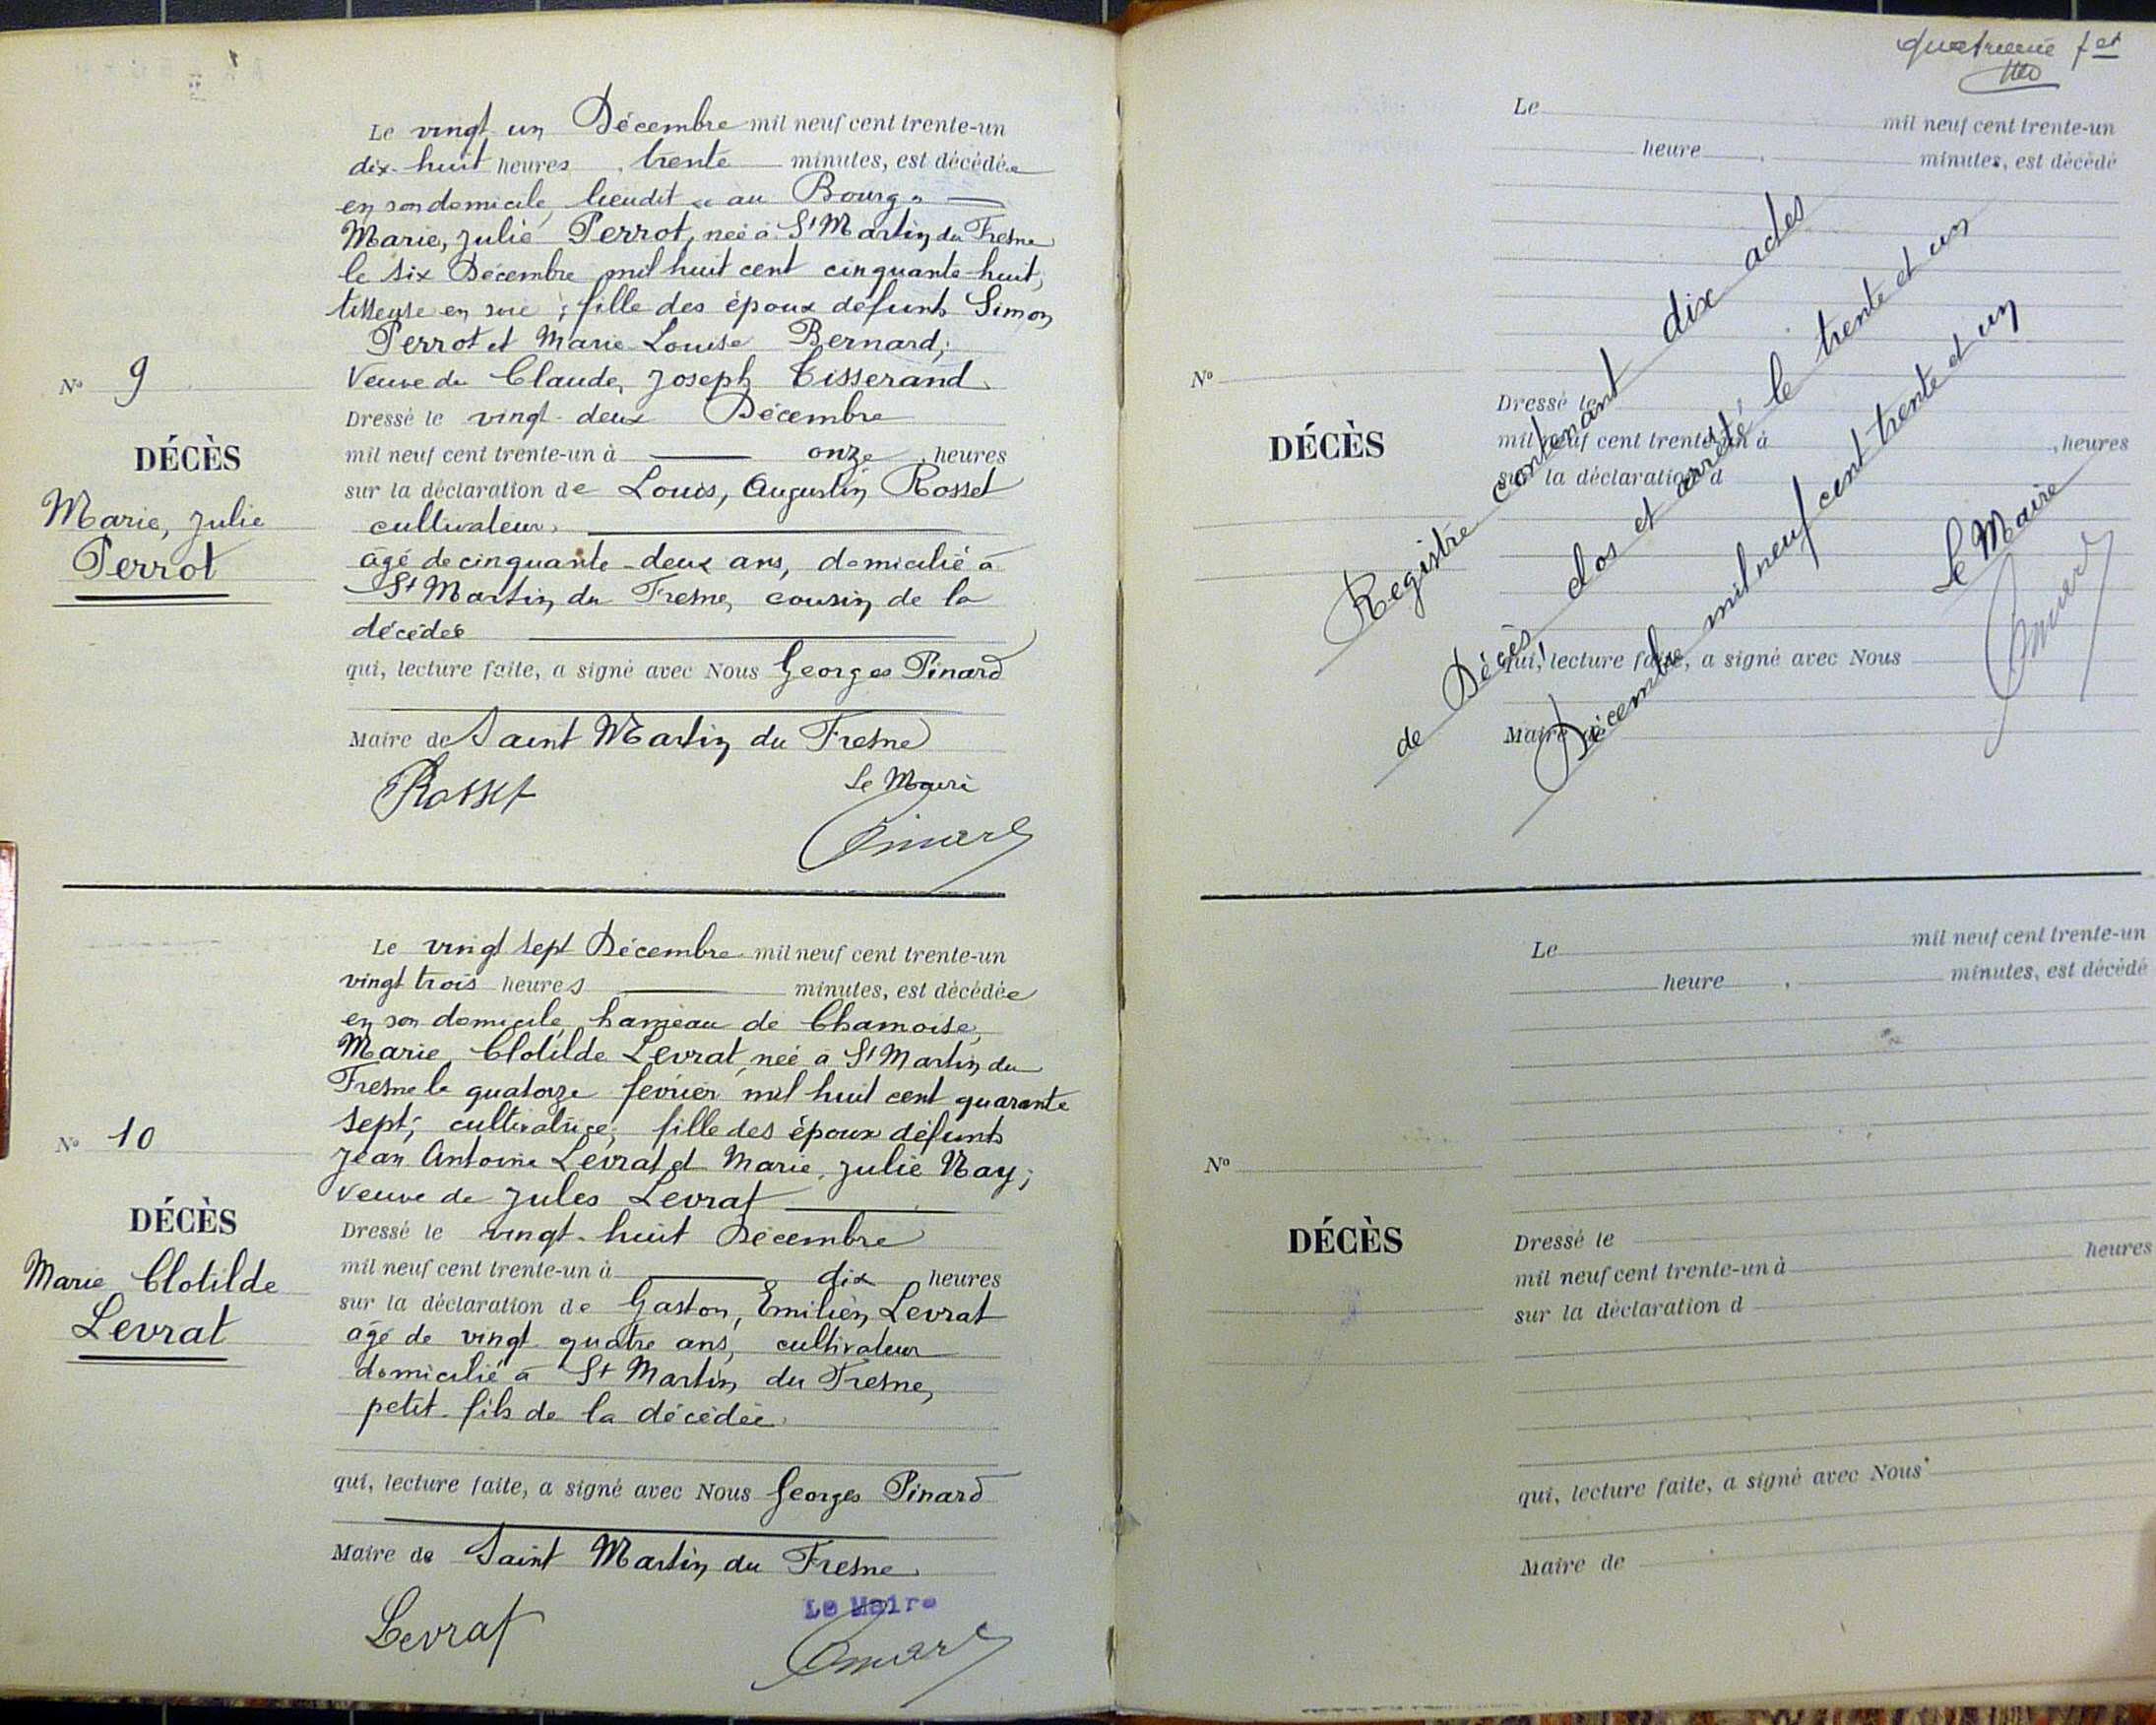 Le vingt un Décembre mil neuf cent trente-un
dix-huit heures, trente minutes, est décédée
en son domicile, lieudit « au Bourg »
Marie, Julie Perrot, née à St Martin du Fresne
le six Décembre mil huit cent cinquante-huit,
tisseuse en soie ; fille des époux défunts Simon
Perrot et Marie Louise Bernard ;
Veuve de Claude, Joseph Tisserand
Dressé le vingt-deux Décembre
mil neuf cent trente-un à onze, heures
sur la déclaration de Louis, Augustin Rosset
cultivateur,
âgé de cinquante-deux ans, domicilié à
St Martin du Fresne, cousin de la
décédée
qui, lecture faite, a signé avec Nous Georges Pinard
Maire de Saint Martin du Fresne
Rosset
Le Maire
Pinard
N° 9
DÉCÈS
Marie, Julie
Perrot
Le vingt sept Décembre mil neuf cent trente-un
vingt trois heures minutes, est décédée
en son domicile, hameau de Chamoise,
Marie, Clotilde Levrat, née à St Martin du
Fresne le quatorze février mil huit cent quarante
sept ; cultivatrice ; fille des époux défunts
Jean Antoine Levrat et Marie, Julie Nay ;
veuve de Jules Levrat
Dressé le vingt-huit Décembre
mil neuf cent trente-un à dix heures
sur la déclaration de Gaston, Emilien Levrat
âgé de vingt quatre ans, cultivateur
domicilié à St Martin du Fresne,
petit-fils de la décédée
qui, lecture faite, a signé avec Nous Georges Pinard
Maire de Saint Martin du Fresne
Levrat
Le Maire
Pinard
N° 10
DÉCÈS
Marie Clotilde
Levrat
Le mil neuf cent trente-un
heure, minutes, est décédé
N°
DÉCÈS
Dressé le
mil neuf cent trente-un à , heures
sur la déclaration d
qui, lecture faite, a signé avec Nous
Maire de
Registre contenant dix actes
de Décès, clos et arrêté le trente et un
Décembre mil neuf cent trente et un
Le Maire
Pinard
Le mil neuf cent trente-un
heure, minutes, est décédé
N°
DÉCÈS
Dressé le
mil neuf cent trente-un à heures
sur la déclaration d
qui, lecture faite, a signé avec Nous
Maire de